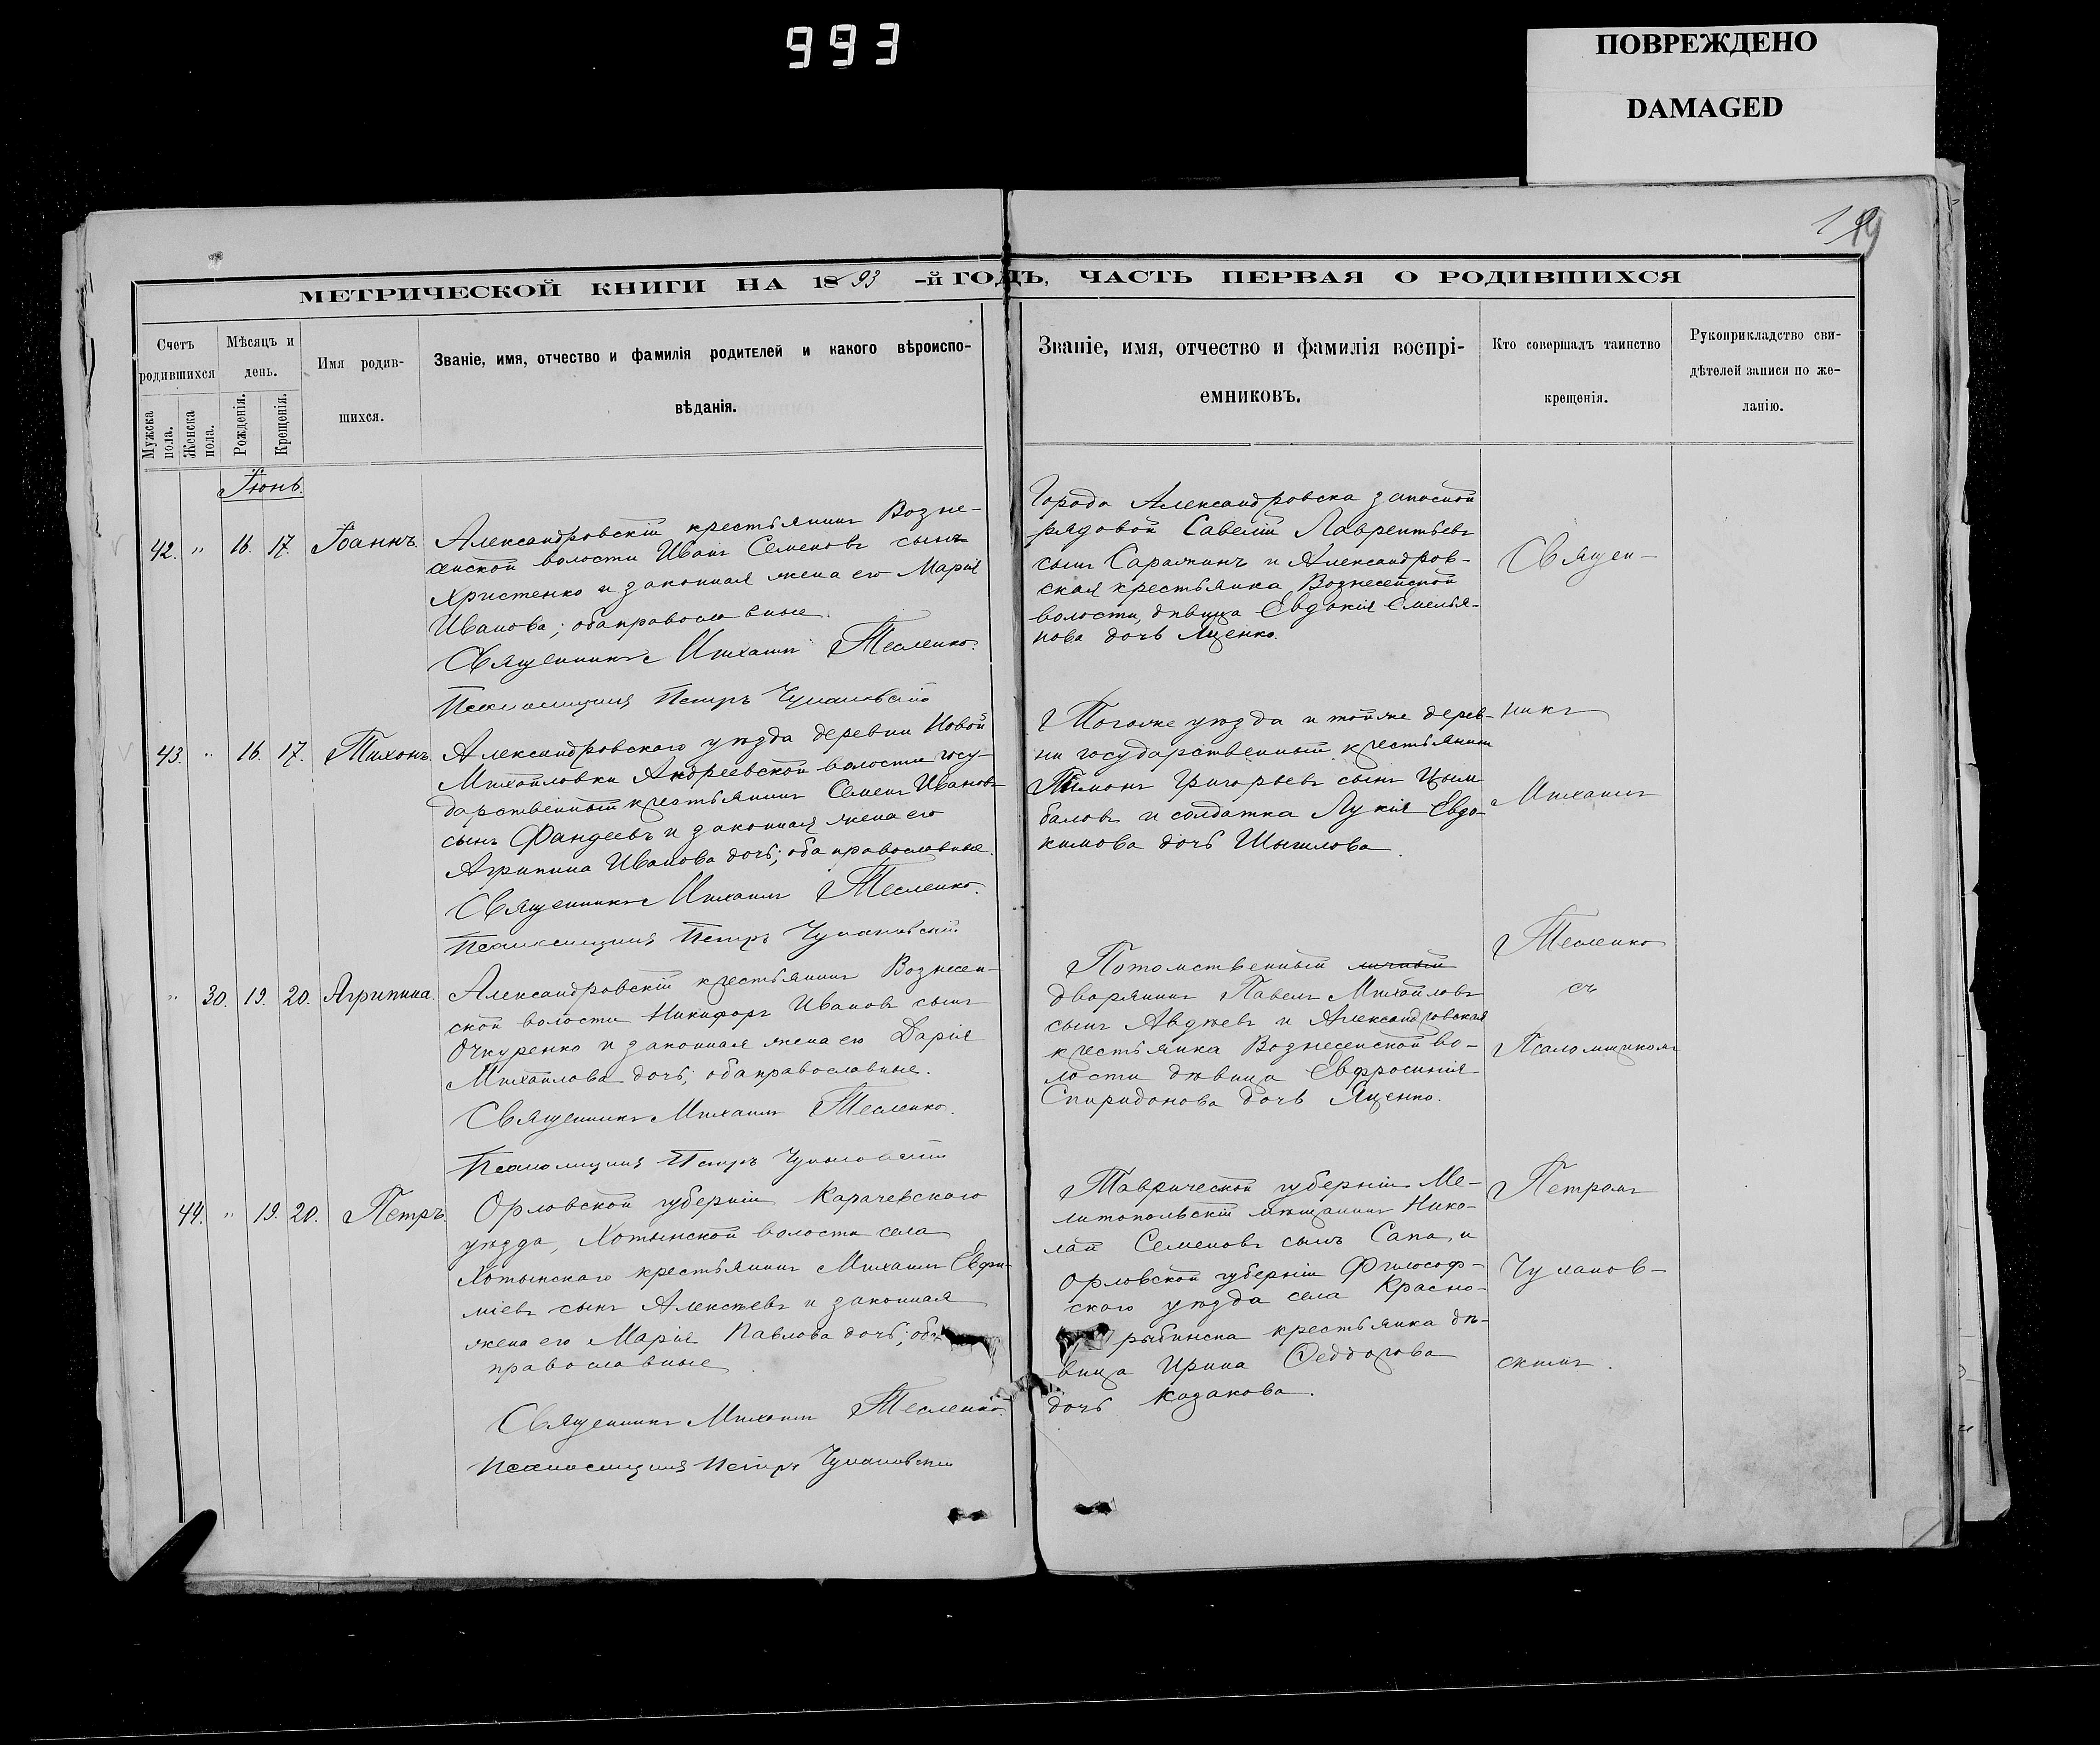 993
ПОВРЕЖДЕНО
DAMAGED
19
МЕТРИЧЕСКОЙ КНИГИ НА 1893 -й ГОДЪ, ЧАСТЬ ПЕРВАЯ О РОДИВШИХСЯ
Счетъ родившихся
Мужска пола.
Женска пола.
Мѣсяцъ и день.
Рожденія.
Крещенія.
Имя родив-
шихся.
Званіе, имя, отчество и фамилія родителей и какого вѣроиспо-
вѣданія.
Званіе, имя, отчество и фамилія воспрі-
емниковъ.
Кто совершалъ таинство
крещенія.
Рукоприкладство сви-
дѣтелей записи по же-
ланію.
Іюнь.
42. " 16. 17. Іоаннъ.
Александровскій крестьянинъ Возне-
сенской волости Иванъ Семеновъ сынъ
Христенко и законная жена его Марія
Иванова; оба православные.
Священникъ Михаилъ Тесленко.
Псаломщикъ Петръ Чумановскій
Города Александровска запасной
рядовой Савелій Лаврентьевъ
сынъ Саражинъ и Александров-
ская крестьянка Вознесенской
волости, дѣвица Евдокія Емелья-
нова дочь Яценко.
43. " 16. 17. Тихонъ.
Александровскаго уѣзда деревни Новой
Михайловки Андреевской волости госу-
дарственный крестьянинъ Семенъ Ивановъ
сынъ Фандеевъ и законная жена его
Агрипина Иванова дочь; оба православные.
Священникъ Михаилъ Тесленко.
Псаломщикъ Петръ Чумановскій
Тогоже уѣзда и тойже дерев-
ни государственный крестьянинъ
Тимонъ Григорьевъ сынъ Цым-
баловъ и солдатка Лукія Евдо-
кимова дочь Шышлова.
" 30. 19. 20. Агрипина.
Александровскій крестьянинъ Вознесен-
ской волости Никифоръ Ивановъ сынъ
Очкуренко и законная жена его Дарія
Михайлова дочь; оба православные.
Священникъ Михаилъ Тесленко.
Псаломщикъ Петръ Чумановскій
Потомственный личный
дворянинъ Павелъ Михайловъ
сынъ Авдѣевъ и Александровская
крестьянка Вознесенской во-
лости дѣвица Евфросинія
Спиридонова дочь Яценко.
44. " 19. 20. Петръ.
Орловской губерніи Карачевскаго
уѣзда, Хотынской волости села
Хотынскаго крестьянинъ Михаилъ Евфи-
міевъ сынъ Алексѣевъ и законная
жена его Марія Павлова дочь; оба
православные.
Священникъ Михаилъ Тесленко.
Псаломщикъ Петръ Чумановскій
Таврической губерніи Ме-
литопольскій мѣщанинъ Нико-
лай Семеновъ сынъ Сапа, и
Орловской губерніи Философ-
скаго уѣзда села Красно-
рыбинска крестьянка дѣ-
вица Ирина Феддорова
дочь Казакова.
Священ-
никъ
Михаилъ
Тесленко
съ
Псаломщикомъ
Петромъ
Чуманов-
скимъ.